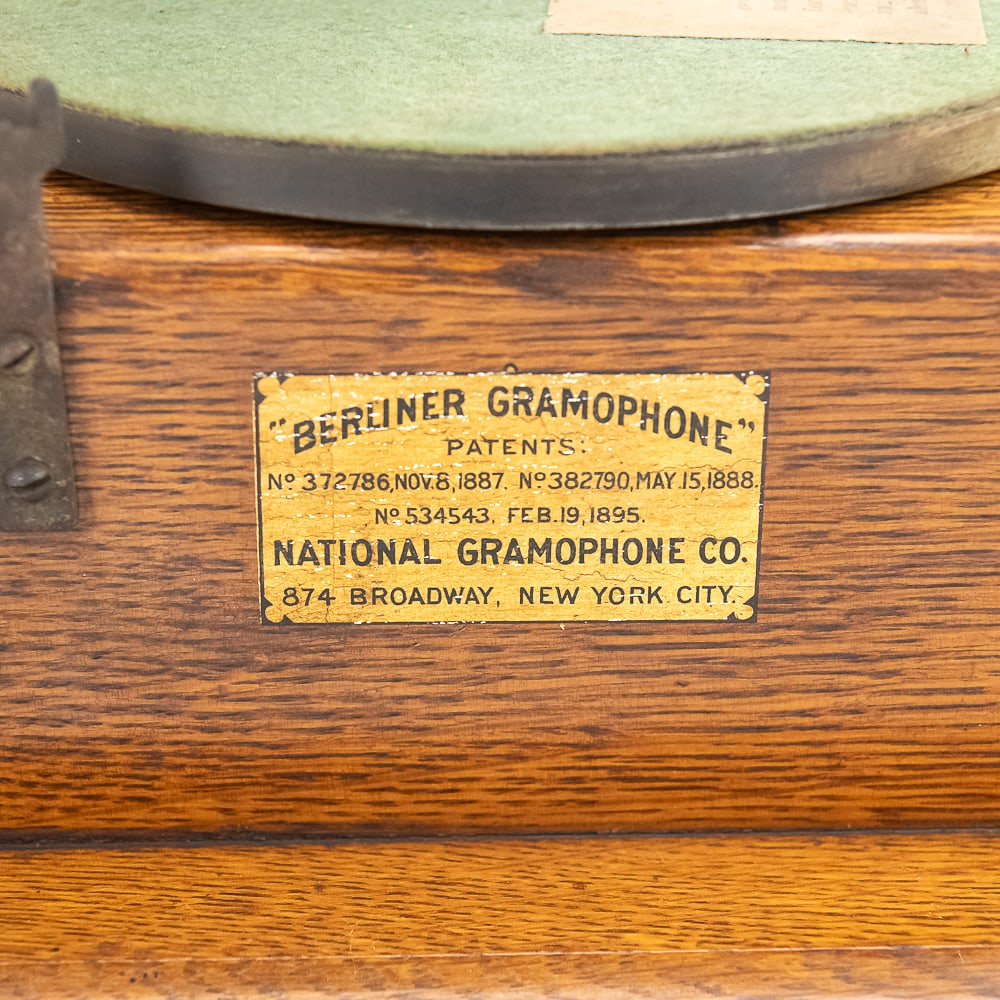 "BERLINER GRAMOPHONE"
PATENTS:
Nº 372786, NOV. 8, 1887. Nº 382790, MAY. 15, 1888.
Nº 534543, FEB. 19, 1895.
NATIONAL GRAMOPHONE CO.
874 BROADWAY, NEW YORK CITY.